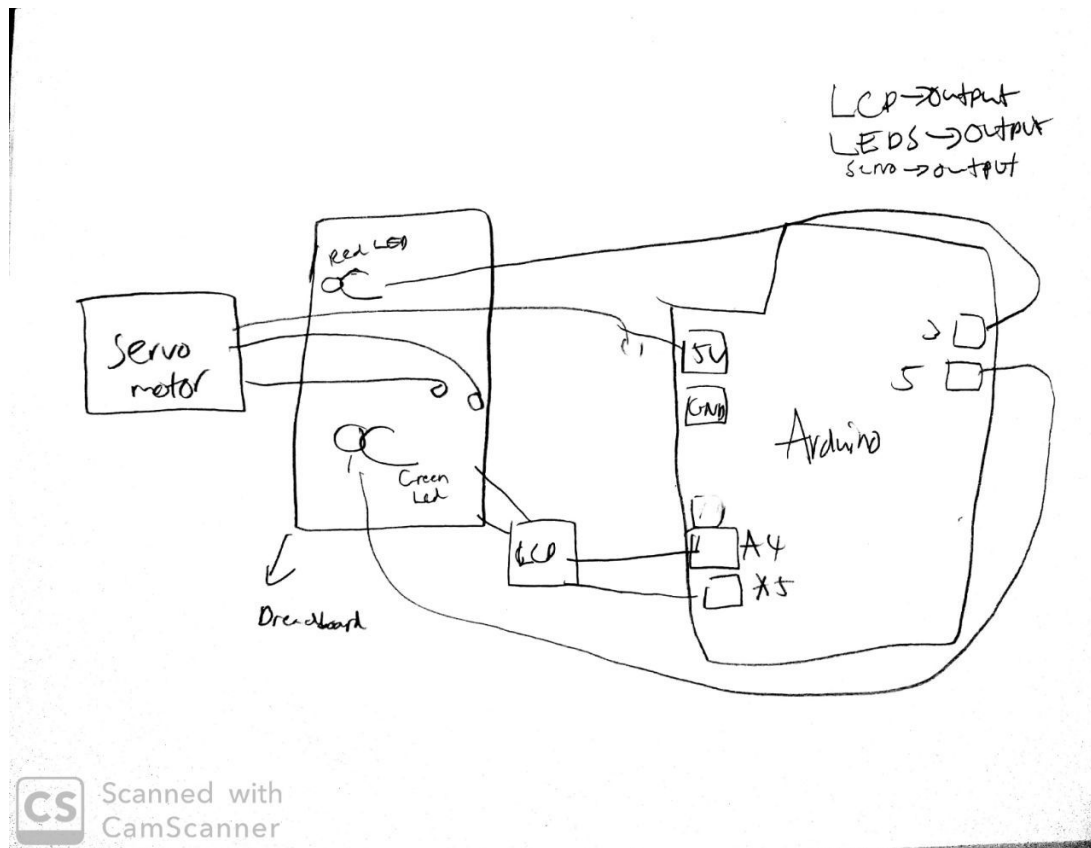 LCD→output
LEDS→output
servo→output
Red LED
Servo
motor
5V
GND
3
5
Arduino
Green
Led
LCD
A4
A5
Breadboard
CS Scanned with
CamScanner